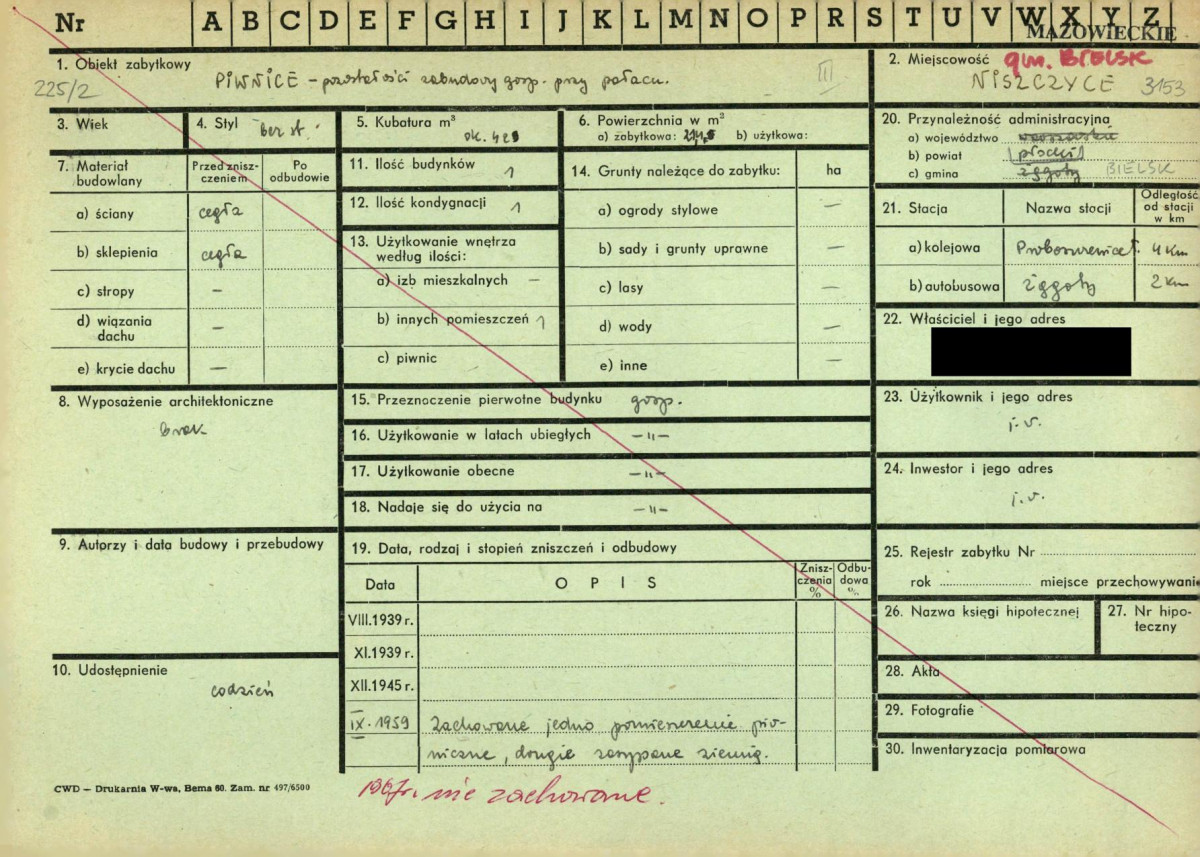 Nr A B C D E F G H I J K L M N O P R S T U V W X Y Z
MAZOWIECKIE
1. Obiekt zabytkowy
PIWNICE – pozostałości zabudowy gosp. przy pałacu.
III
225/2
2. Miejscowość gm. BIELSK
NISZCZYCE 3153
3. Wiek
4. Styl bez st.
5. Kubatura m³
ok. 42
6. Powierzchnia w m²
a) zabytkowa: b) użytkowa:
20. Przynależność administracyjna
a) województwo warszawskie
b) powiat płocki
c) gmina BIELSK
7. Materiał budowlany
Przed zniszczeniem
Po odbudowie
a) ściany cegła
b) sklepienia cegła
c) stropy –
d) wiązania dachu –
e) krycie dachu –
11. Ilość budynków 1
12. Ilość kondygnacji 1
13. Użytkowanie wnętrza według ilości:
a) izb mieszkalnych –
b) innych pomieszczeń 1
c) piwnic
14. Grunty należące do zabytku: ha
a) ogrody stylowe –
b) sady i grunty uprawne –
c) lasy –
d) wody –
e) inne –
21. Stacja
Nazwa stacji
Odległość od stacji w km
a) kolejowa 4 km
b) autobusowa 2 km
22. Właściciel i jego adres
8. Wyposażenie architektoniczne
brak
15. Przeznaczenie pierwotne budynku gosp.
16. Użytkowanie w latach ubiegłych –"–
17. Użytkowanie obecne –"–
18. Nadaje się do użycia na –"–
23. Użytkownik i jego adres
j.w.
24. Inwestor i jego adres
j.w.
9. Autorzy i data budowy i przebudowy
19. Data, rodzaj i stopień zniszczeń i odbudowy
Data
OPIS
Zniszczenia %
Odbudowa %
VIII.1939 r.
XI.1939 r.
XII.1945 r.
IX. 1959 Zachowane jedno pomieszczenie piw-
niczne, drugie zasypane ziemią.
25. Rejestr zabytku Nr
rok miejsce przechowywani
26. Nazwa księgi hipotecznej
27. Nr hipoteczny
10. Udostępnienie
codzień
28. Akta
29. Fotografie
30. Inwentaryzacja pomiarowa
CWD – Drukarnia W-wa, Bema 60. Zam. nr 497/6500
1967r. nie zachowane.